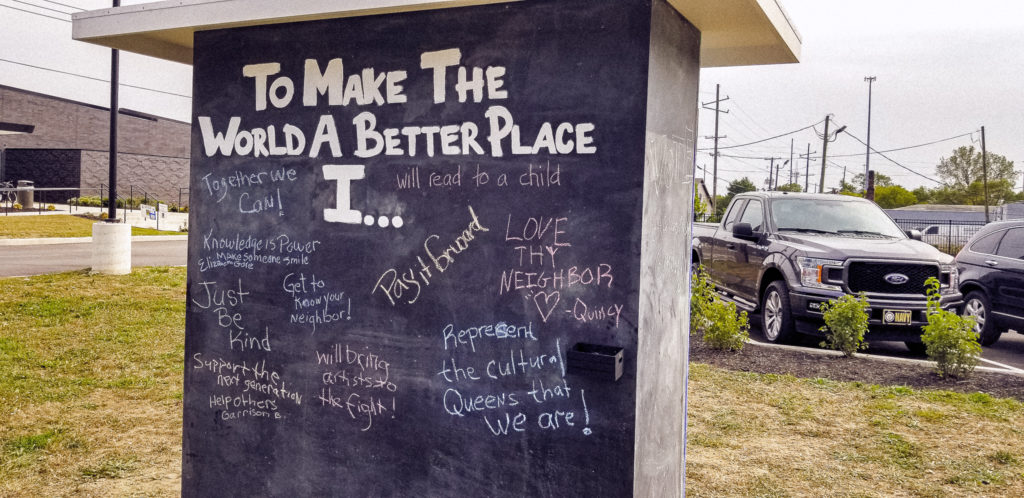 To Make The
World A Better Place
I...
Together we
Can!
will read to a child
Knowledge is Power
Make someone smile
Elizabeth Gore
Pay it forward
LOVE
THY
NEIGHBOR
"♡" -Quincy
Just
Be
Kind
Get to
know your
neighbor!
Support the
next generation
Help others
Garrison B.
will bring
artists to
the fight!
Represent
the cultural
Queens that
we are!
Ford
NAVY